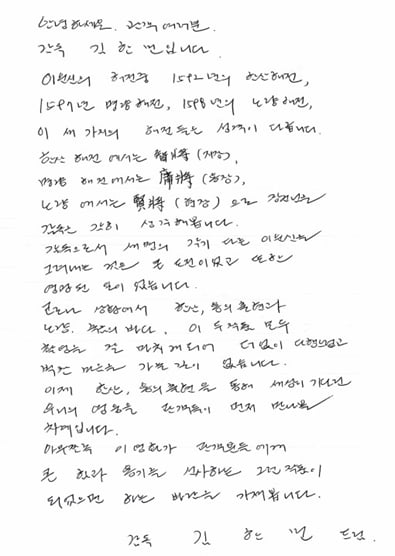 안녕하세요. 관객 여러분.
감독 김한민입니다.
이순신의 해전중 1592년의 한산해전,
1597년 명량해전, 1598년의 노량해전,
이 세 가지의 해전들은 성격이 다릅니다.
한산 해전에서는 智將 (지장),
명량 해전에서는 勇將 (용장),
노량 에서는 賢將 (현장) 으로 장군님을
감독은 감히 생각해봅니다.
감독으로서 세명의 각기 다른 이순신을
그려내는 것은 큰 도전이었고 또한
영광된 일이었습니다.
코로나 상황에서 한산, 용의 출현과
노량, 죽음의 바다. 이 두작품 모두
촬영을 잘 마치게 되어 더없이 다행스럽고
벅찬 마음을 가눌 길이 없습니다.
이제 한산, 용의출현 을 통해 세상이 기다린
우리의 영웅을 관객들이 먼저 만나볼
차례입니다.
아무쪼록 이 영화가 관객분들에게
큰 힘과 용기를 선사하는 그런 작품이
되었으면 하는 바람을 가져봅니다.
감독 김 한 민 드림.